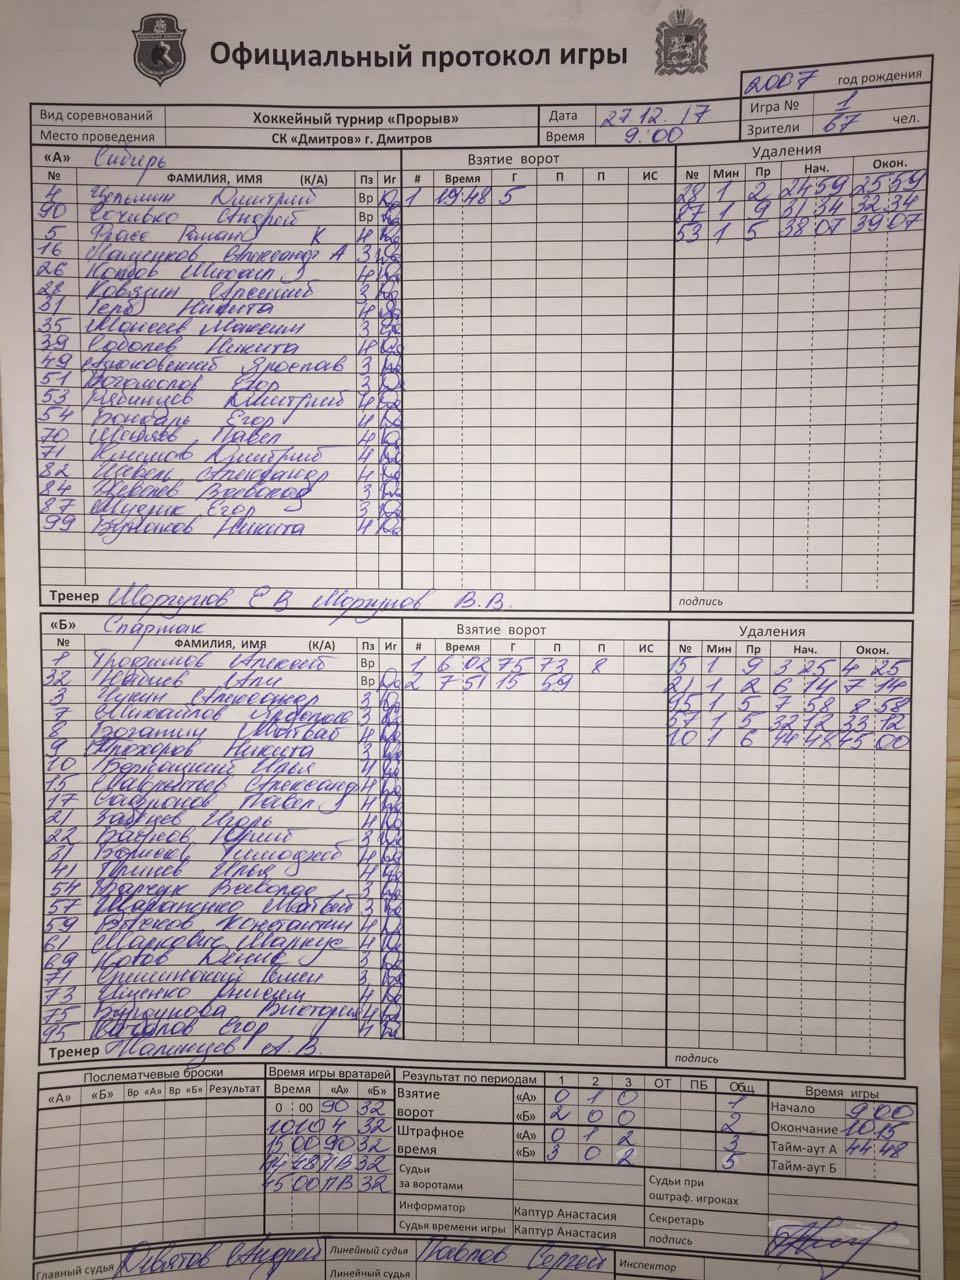 Официальный протокол игры
2007 год рождения
Вид соревнований Хоккейный турнир «Прорыв» Дата 27.12.17 Игра № 1
Место проведения СК «Дмитров» г. Дмитров Время 9:00 Зрители 67 чел.
«А» Сибирь Взятие ворот Удаления
№ ФАМИЛИЯ, ИМЯ (К/А) Пз Иг # Время Г П П ИС № Мин Пр Нач. Окон.
4 Дмитрий Вр 1 19 48 5 28 1 2 24 59 25 59
90 Сочивко Андрей Вр 87 1 9 31 34 32 34
5 Фросс Роман К 4 53 1 5 38 07 39 07
16 Александр А 3
26 Михаил 4
28 Ковязин Арсений 3
31 Герб Никита 4
35 Моисеев Максим 3
39 Соболев Никита 4
49 Ярослав 3
51 Богомолов Егор 3
53 Рябинцев Дмитрий 4
54 Бондарь Егор 4
70 Павел 4
71 Дмитрий 4
82 Александр 4
84 Всеволод 3
87 Егор 3
99 Никита 4
Тренер Моргунов Е В Моргунов В.В. подпись
«Б» Спартак Взятие ворот Удаления
№ ФАМИЛИЯ, ИМЯ (К/А) Пз Иг # Время Г П П ИС № Мин Пр Нач. Окон.
1 Трофимов Алексей Вр 1 6 02 75 73 8 15 1 9 3 25 4 25
32 Али Вр Да 2 7 51 15 59 21 1 2 6 14 7 14
3 Чукин Александр 3 95 1 5 7 58 8 58
7 Михайлов Ярослав 3 57 1 5 32 12 33 12
8 Богатин Матвей 4 10 1 6 44 48 45 00
9 Прохоров Никита 3
10 Илья 4
15 Лаврентьев Александр 4
17 Сафронов Павел 4
21 Зайцев Игорь 4
22 Юрий 3
31 Тимофей 4
41 Гринев Илья 4
54 Барчук Всеволод 3
57 Шараненко Матвей 3
59 Константин 4
61 Маркович Маркус 4
69 Котов Денис 3
71 3
73 Ищенко Анисим 4
75 Бурдукова Виктория 4
95 Егор 4
Тренер Малинцев А.В. подпись
Послематчевые броски Время игры вратарей Результат по периодам 1 2 3 ОТ ПБ Общ Время игры
«А» «Б» Вр «А» Вр «Б» Результат Время «А» «Б»
Взятие ворот «А» 0 1 0 1 Начало 9:00
«Б» 2 0 0 2 Окончание 10.15
Штрафное время «А» 0 1 2 3 Тайм-аут А 44 48
«Б» 3 0 2 5 Тайм-аут Б
0 00 90 32
10 10 4 32
15 00 90 32
44 48 ПВ 32
45 00 ПВ 32
Судьи за воротами Судьи при оштраф. игроках
Информатор Каптур Анастасия Секретарь
Судья времени игры Каптур Анастасия подпись
Главный судья Девятов Андрей Линейный судья Павлов Сергей
Линейный судья Инспектор